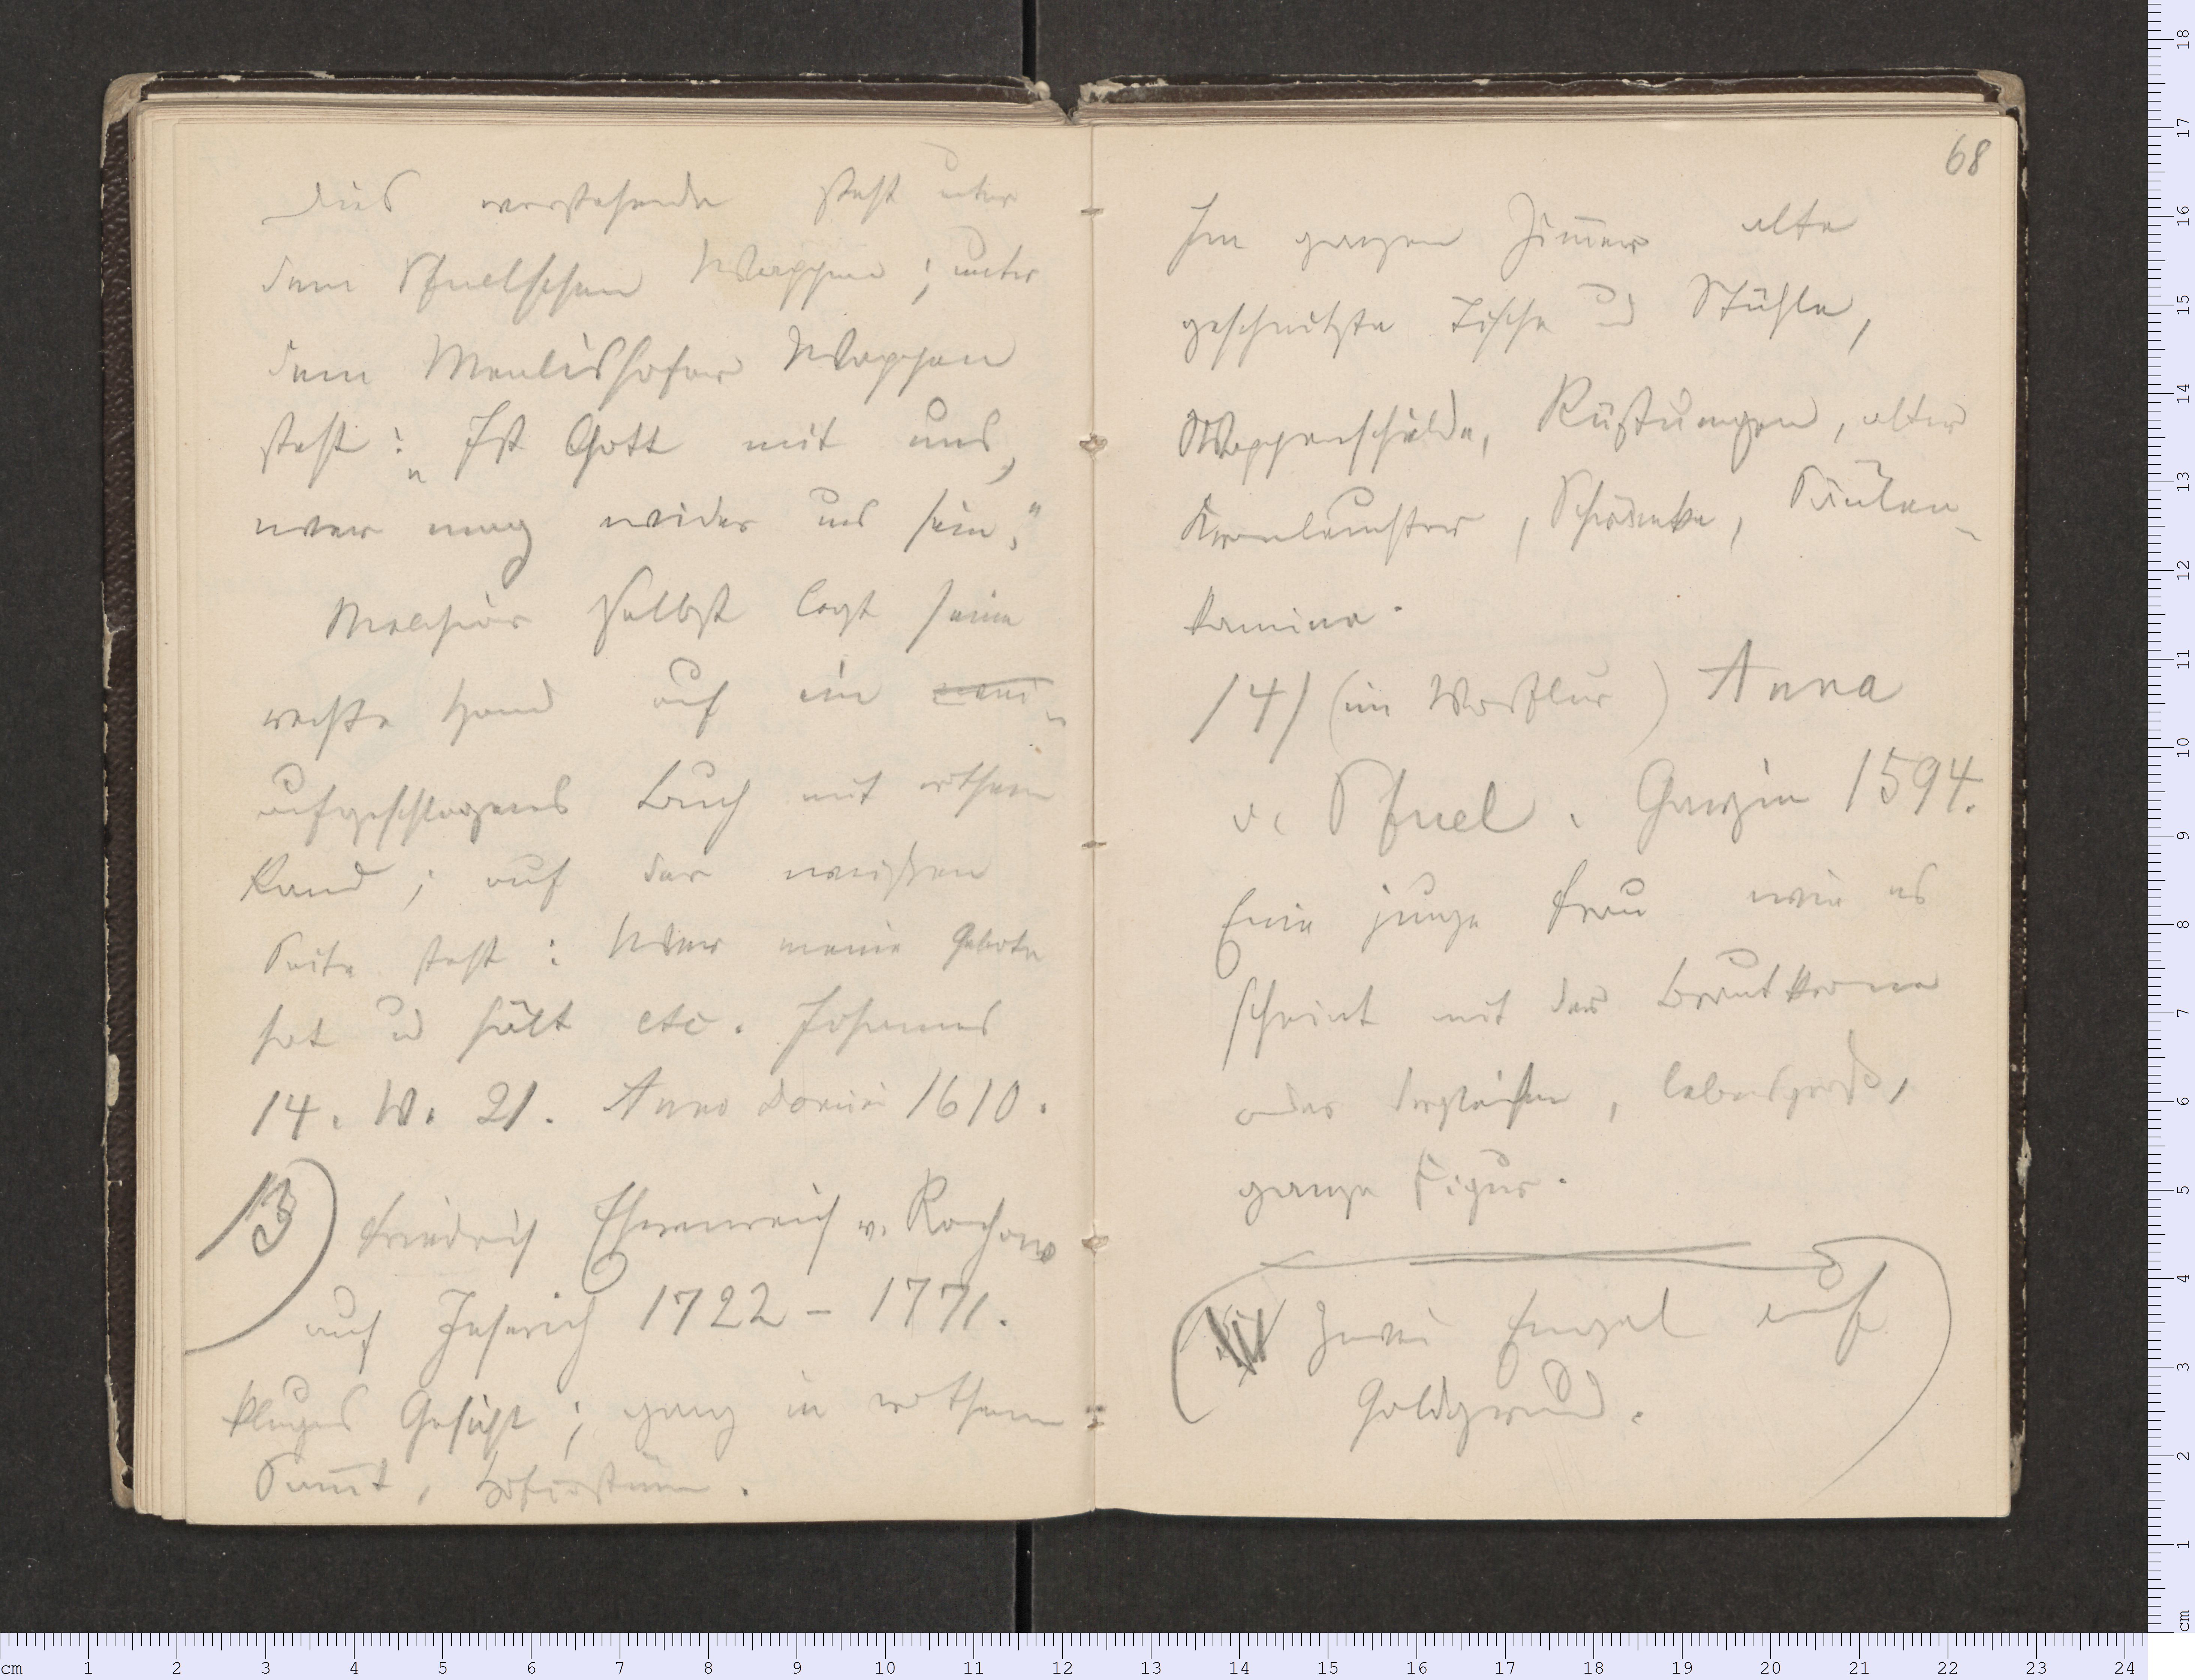 Dies vorstehende steht unter
dem Pfuelschen Wappen; unter
dem Meulishofer Wappen
steht: „Ist Gott mit uns,
wer mag wider uns sein.“
Melchior selbst legt seine
rechte Hand auf ein
aufgeschlagenes Buch mit rothem
Rand; auf der weißen
Seite steht: Wer meine Gebote
hat u hält etc. Johannes
14. W. 21. Anno Domini 1610.
13) Friedrich Ehrenreich v. Rochow
auf Jeserich 1722 – 1771.
kluges Gesicht; ganz in rothem
Sam̄t, Hofcostüm.
68
Im ganzen Zim̄er alte
geschnitzte Tische u Stühle,
Wappenschilde, Rüstungen, alter
Kronleuchter, Schränke, Säulen-
kamine.
14) (im Vorflur) Anna
v. Pfuel. Garzin 1594.
Eine junge Frau wie es
scheint mit der Brautkrone
oder dergleichen, lebensgroß,
ganze Figur.
Zwei Engel auf
Goldgrund.